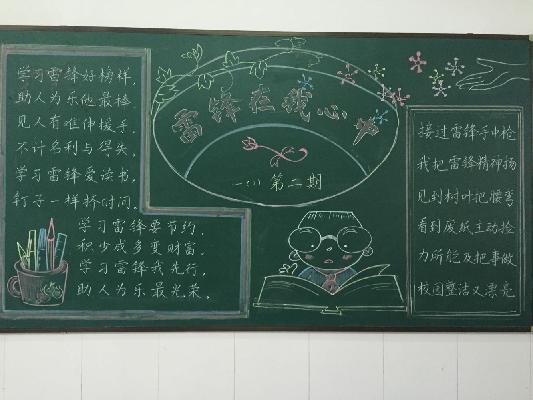 学习雷锋好榜样,
助人为乐他最棒,
见人有难伸援手,
不计名利与得失,
学习雷锋爱读书,
钉子一样挤时间.
学习雷锋要节约,
积少成多变财富.
学习雷锋我先行,
助人为乐最光荣.
雷锋在我心中
一(1)第二期
接过雷锋手中枪
我把雷锋精神扬
见到树叶把腰弯
看到废纸主动捡
力所能及把事做
校园整洁又漂亮